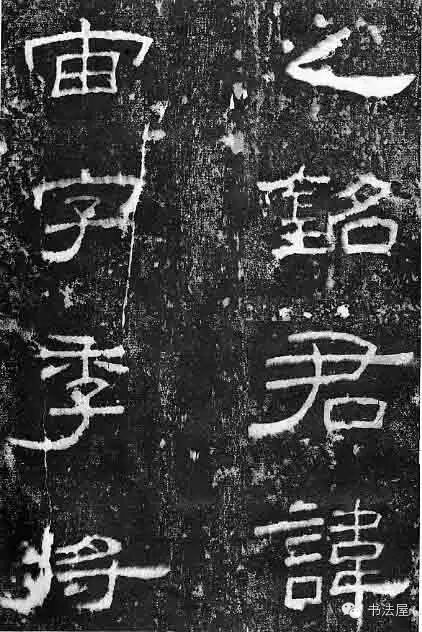 之銘君諱
宙字季將
书法屋